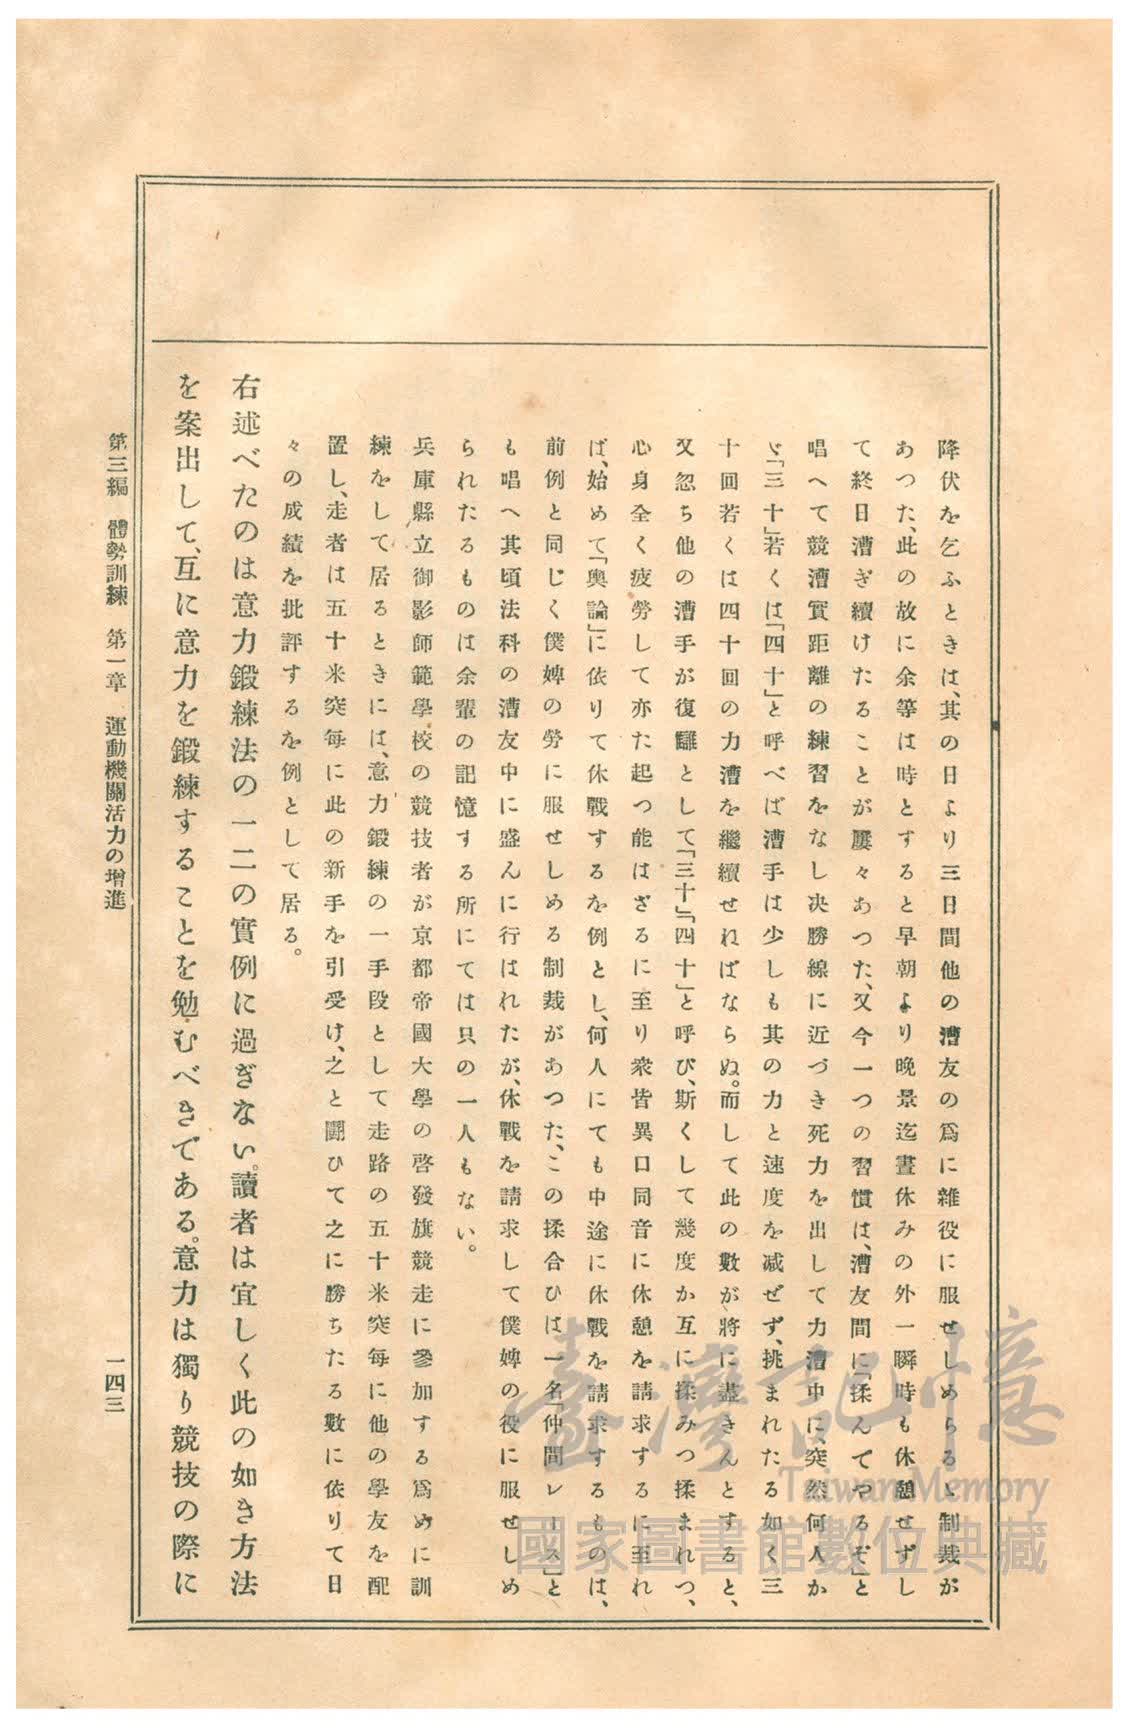 降伏を乞ふときは、其の日より三日間他の漕友の爲に雜役に服せしめらるゝ制裁が
あつた、此の故に余等は時とすると早朝より晩景迄晝休みの外一瞬時も休憩せずし
て終日漕ぎ續けたることが屢々あつた、又今一つの習慣は、漕友間に「揉んでやるぞ」と
唱へて競漕實距離の練習をなし決勝線に近づき死力を出して力漕中に、突然何人か
ゞ「三十」若くは「四十」と呼べば漕手は少しも其の力と速度を减ぜず、挑まれたる如く三
十回若くは四十回の力漕を繼續せねばならぬ。而して此の數が將に盡きんとすると、
又忽ち他の漕手が復讎として「三十」「四十」と呼び、斯くして幾度か互に揉みつ揉まれつ、
心身全く疲勞して亦た起つ能はざるに至り衆皆異口同音に休憩を請求するに至れ
ば、始めて「輿論」に依りて休戰するを例とし、何人にても中途に休戰を請求するものは、
前例と同じく僕婢の勞に服せしめる制裁があつた、この揉合ひは一名「仲間レース」と
も唱へ其頃法科の漕友中に盛んに行はれたが、休戰を請求して僕婢の役に服せしめ
られたるものは余輩の記憶する所にては只の一人もない。
兵庫縣立御影師範學校の競技者が京都帝國大學の啓發旗競走に參加する爲めに訓
練をして居るときには、意力鍛練の一手段として走路の五十米突每に他の學友を配
置し、走者は五十米突每に此の新手を引受け、之と鬪ひて之に勝ちたる數に依りて日
々の成績を批評するを例として居る。
右述べたのは意力鍛練法の一二の實例に過ぎない。讀者は宜しく此の如き方法
を案出して、互に意力を鍛練することを勉むべきである。意力は獨り競技の際に
第三編　體勢訓練　第一章　運動機關活力の增進
一四三
臺灣記憶
Taiwan Memory
國家圖書館數位典藏